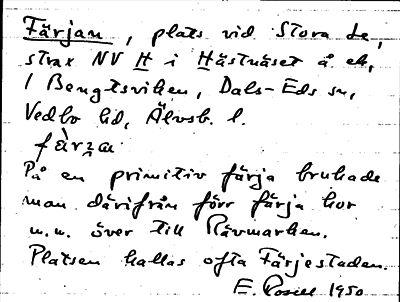 Färjan, plats vid Stora Le,
strax NV H i Hästnäset å ek,
1 Bengtsviken, Dals-Eds sn,
Vedbo hd, Älvsb. l.
fàrza
På en primitiv färja brukade
man därifrån förr färja kor
m.m. över till Rävmarken.
Platsen kallas ofta Färjestaden.
E. Rosell 1950